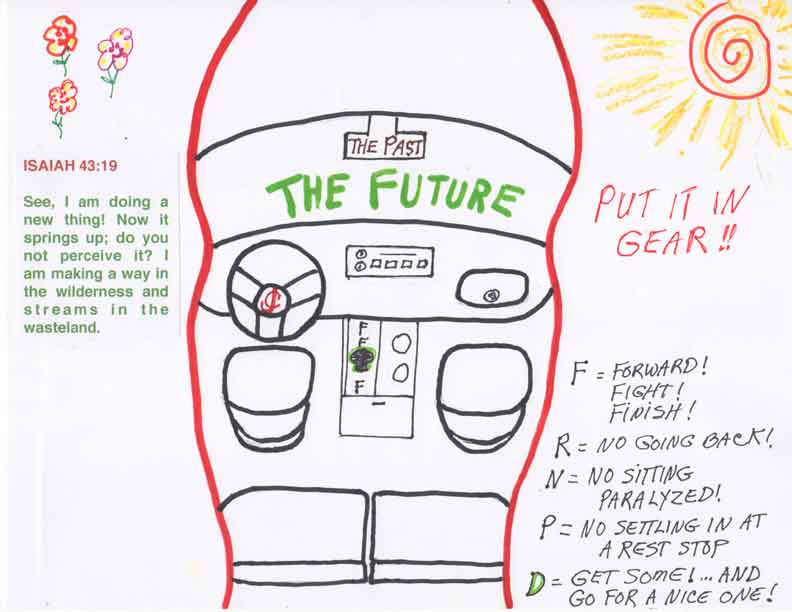 ISAIAH 43:19
See, I am doing a
new thing! Now it
springs up; do you
not perceive it? I
am making a way in
the wilderness and
streams in the
wasteland.
THE PAST
THE FUTURE
PUT IT IN
GEAR!!
F
F
F
F = FORWARD!
FIGHT!
FINISH!
R = NO GOING BACK!
N = NO SITTING
PARALYZED!
P = NO SETTLING IN AT
A REST STOP
D = GET SOME!...AND
GO FOR A NICE ONE!